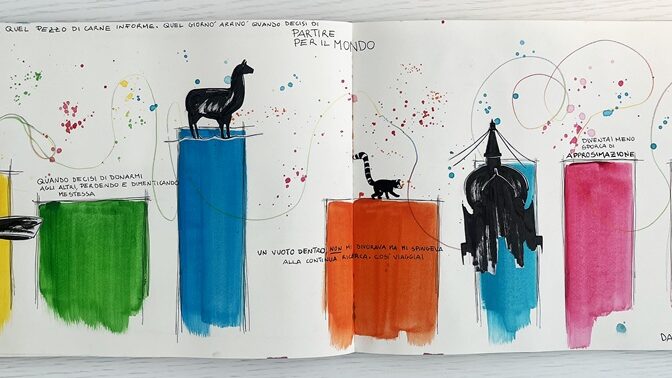 QUEL PEZZO DI CARNE INFORME. QUEL GIORNO ARRIVÒ QUANDO DECISI DI
PARTIRE
PER IL MONDO
QUANDO DECISI DI DONARMI
AGLI ALTRI, PERDENDO E DIMENTICANDO
MESTESSA
UN VUOTO DENTRO, NON MI DIVORAVA MA MI SPINGEVA
ALLA CONTINUA RICERCA. COSÌ VIAGGIAI
DIVENTAI MENO
SPORCA DI
APPROSIMAZIONE
DA